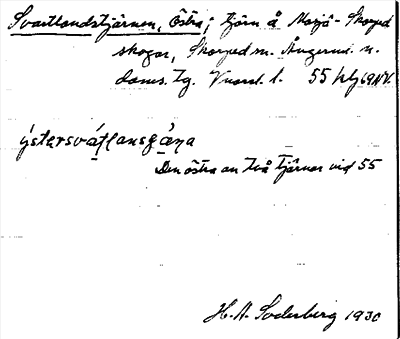 Svartlandstjärnen, Östra; tjärn å Mosjö-Skorped
skogar, Skorped sn. Ångerml. n.
doms. Tg. 55
ýstersvát̩lansʂǻn̩a
Den östra av två tjärnar vid 55
H. A. Söderberg 1930